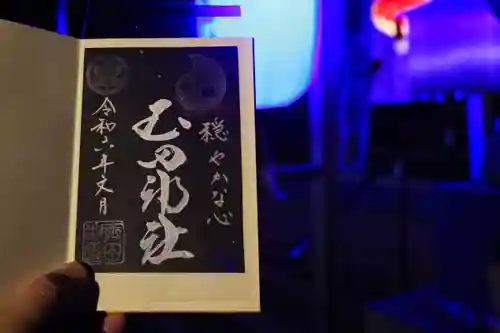 穏やかな心
玉田神社
令和六年文月